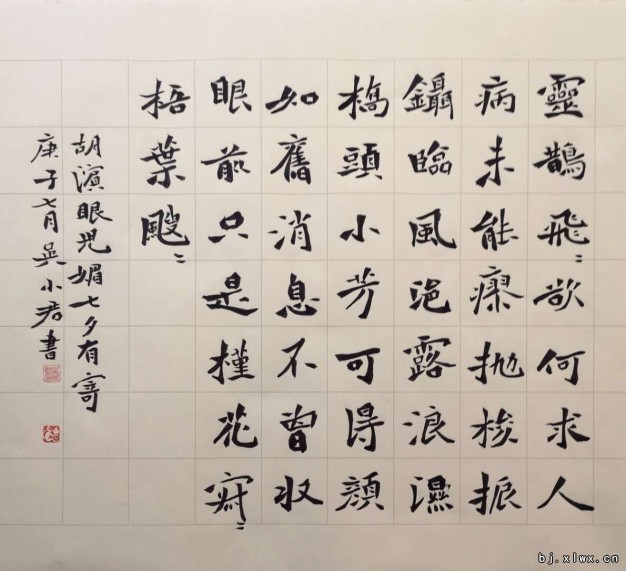 靈鵲飛〻欲何求人
病未能瘳拋梭振
鑷臨風浥露浪濕
橋頭小芳可得顏
如舊消息不曾收
眼前只是槿花寂〻
梧葉颼〻
胡眼兒媚七夕有寄
庚子七月吳小君書
bj.xlwx.cn